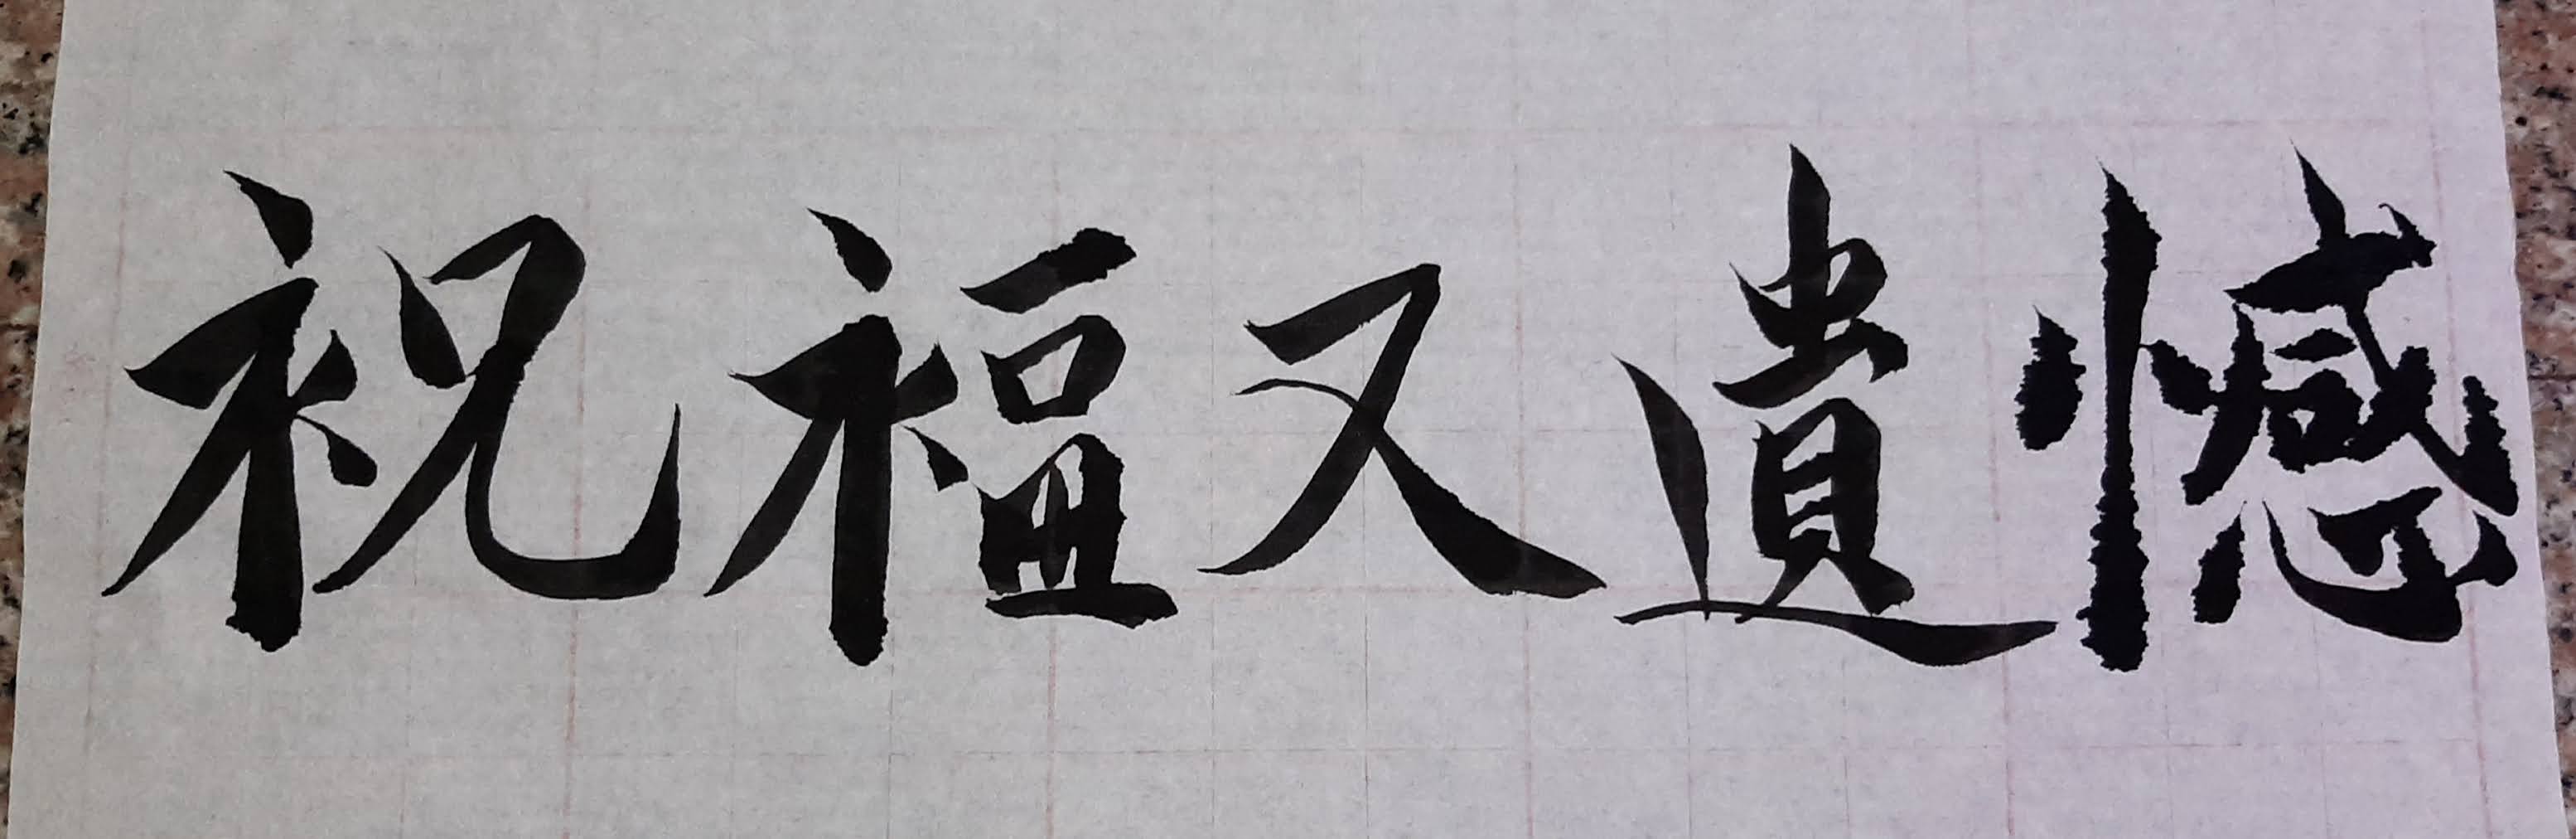 祝福又遺憾